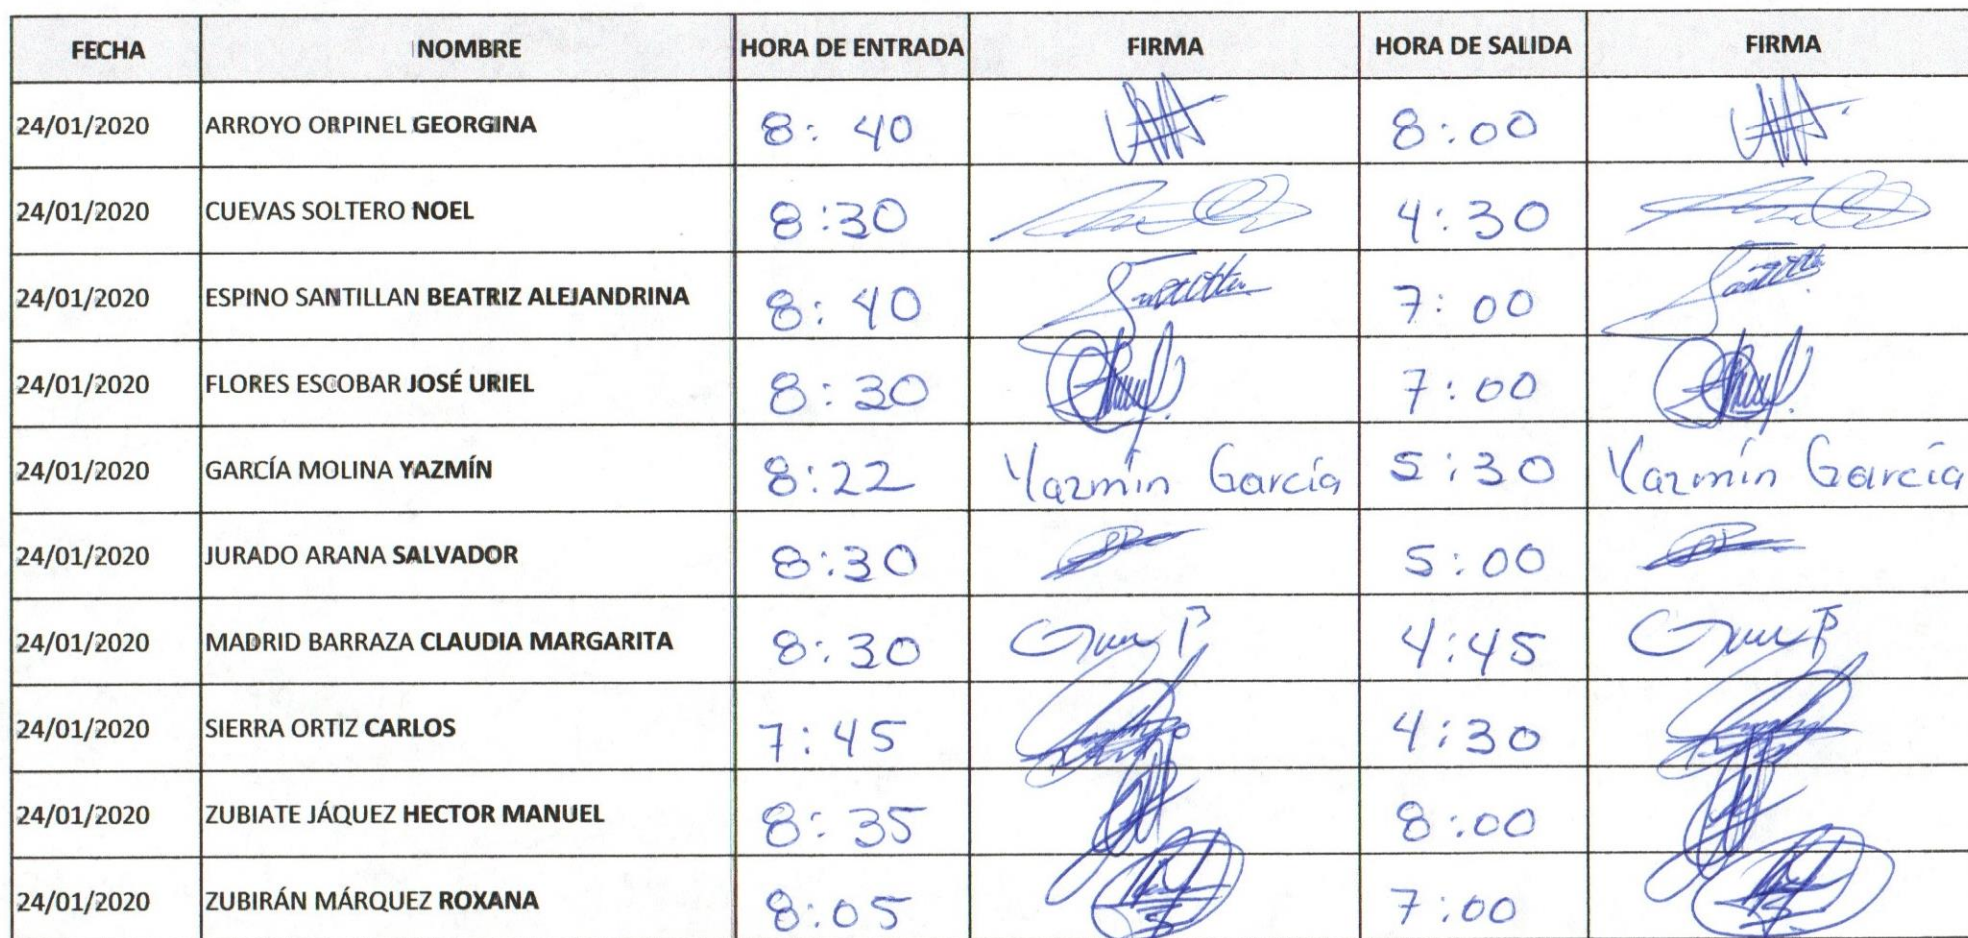 FECHA NOMBRE HORA DE ENTRADA FIRMA HORA DE SALIDA FIRMA
24/01/2020 ARROYO ORPINEL GEORGINA 8:40 8:00
24/01/2020 CUEVAS SOLTERO NOEL 8:30 4:30
24/01/2020 ESPINO SANTILLAN BEATRIZ ALEJANDRINA 8:40 7:00
24/01/2020 FLORES ESCOBAR JOSÉ URIEL 8:30 7:00
24/01/2020 GARCÍA MOLINA YAZMÍN 8:22 Yazmín García 5:30 Yazmín García
24/01/2020 JURADO ARANA SALVADOR 8:30 5:00
24/01/2020 MADRID BARRAZA CLAUDIA MARGARITA 8:30 4:45
24/01/2020 SIERRA ORTIZ CARLOS 7:45 4:30
24/01/2020 ZUBIATE JÁQUEZ HECTOR MANUEL 8:35 8:00
24/01/2020 ZUBIRÁN MÁRQUEZ ROXANA 8:05 7:00